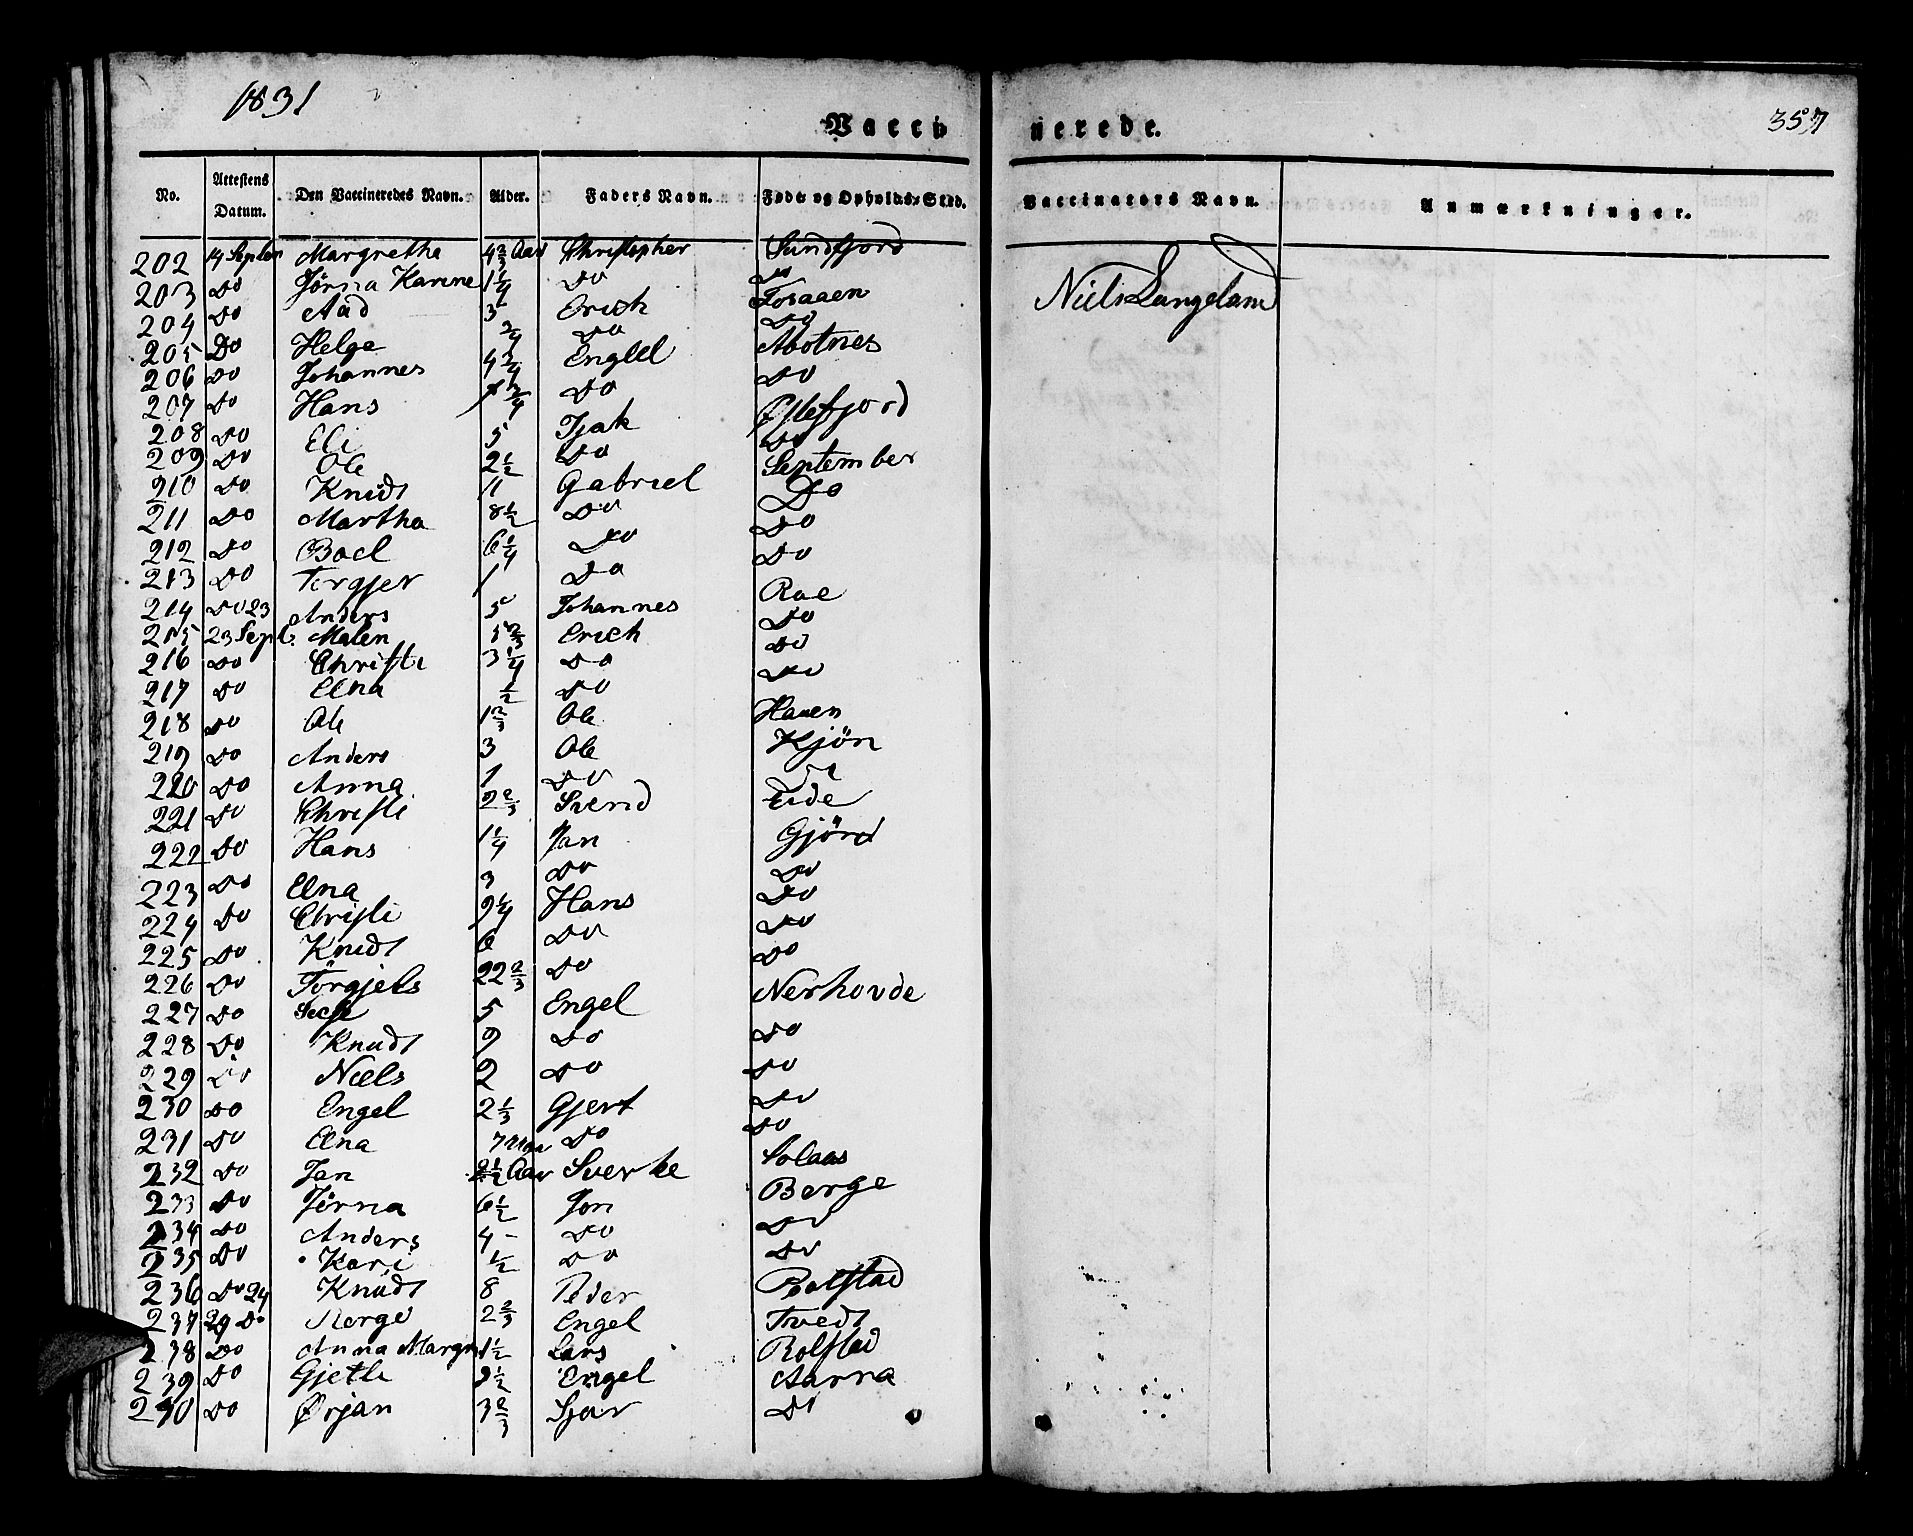 1831
Vaccinerede.
357
No. Attestens Datum. Den Vaccineredes Navn. Alder. Faders Navn. Føde og Opholds-Sted. Vaccinators Navn. Anmærkninger.
202 14 Septem Margrethe 4 2/3 Aar Christopher Sundfjord Niels Langeland
203 Do Jörna Karine 1 1/4 Do Do
204 Do Aad 3 Erich Tosaaen
205 Do Helge 3/4 Do Do
206 Do Johannes 4 3/4 Englel Abotnes
207 Do Hans 1 3/4 Do Do
208 Do Eli 5 Isak Østefjord
209 Do Ole 2 1/2 Do Do
210 Do Knudt 11 Gabriel September
211 Do Martha 8 1/2 Do Do
212 Do Boel 6 1/4 Do Do
213 Do Torgjer 1 Do Do
214 Do 23 Anders 5 Johannes Roe
215 23 Sept. Malen 5 2/3 Erich Do
216 Do Christi 3 1/4 Do Do
217 Do Elna 1/2 Do Do
218 Do Ole 1 2/3 Ole Hauen
219 Do Anders 3 Ole Kjön
220 Do Anna 1 Do Do
221 Do Christi 2 2/3 Svend Eide
222 Do Hans 1 1/4 Jan Gjörd
223 Do Elna 3 Do Do
224 Do Christi 9 1/4 Hans Do
225 Do Knudt 6 Do Do
226 Do Törgjels 22 2/3 Do Do
227 Do 5 Engel Nerhovde
228 Do Knudt 9 Do Do
229 Do Niels 2 Do Do
230 Do Engel 2 1/3 Gjert Do
231 Do Elna 7 Do Do
232 Do Jan 2 1/2 Aar Sverke Solaas
233 Do Jörna 6 1/2 Jon Berge
234 Do Anders 4 - Do Do
235 Do Kari 1/2 Do Do
236 Do 24 Knudt 8 Peder Rolfstad
237 29 Do Børge 2 2/3 Engel Tvedt
238 Do Anna Margr 1 1/2 Lars Rolfstad
239 Do Gjetle 2 1/2 Engel Aarra
240 Do Ørjan 3 2/3 Sjar Do